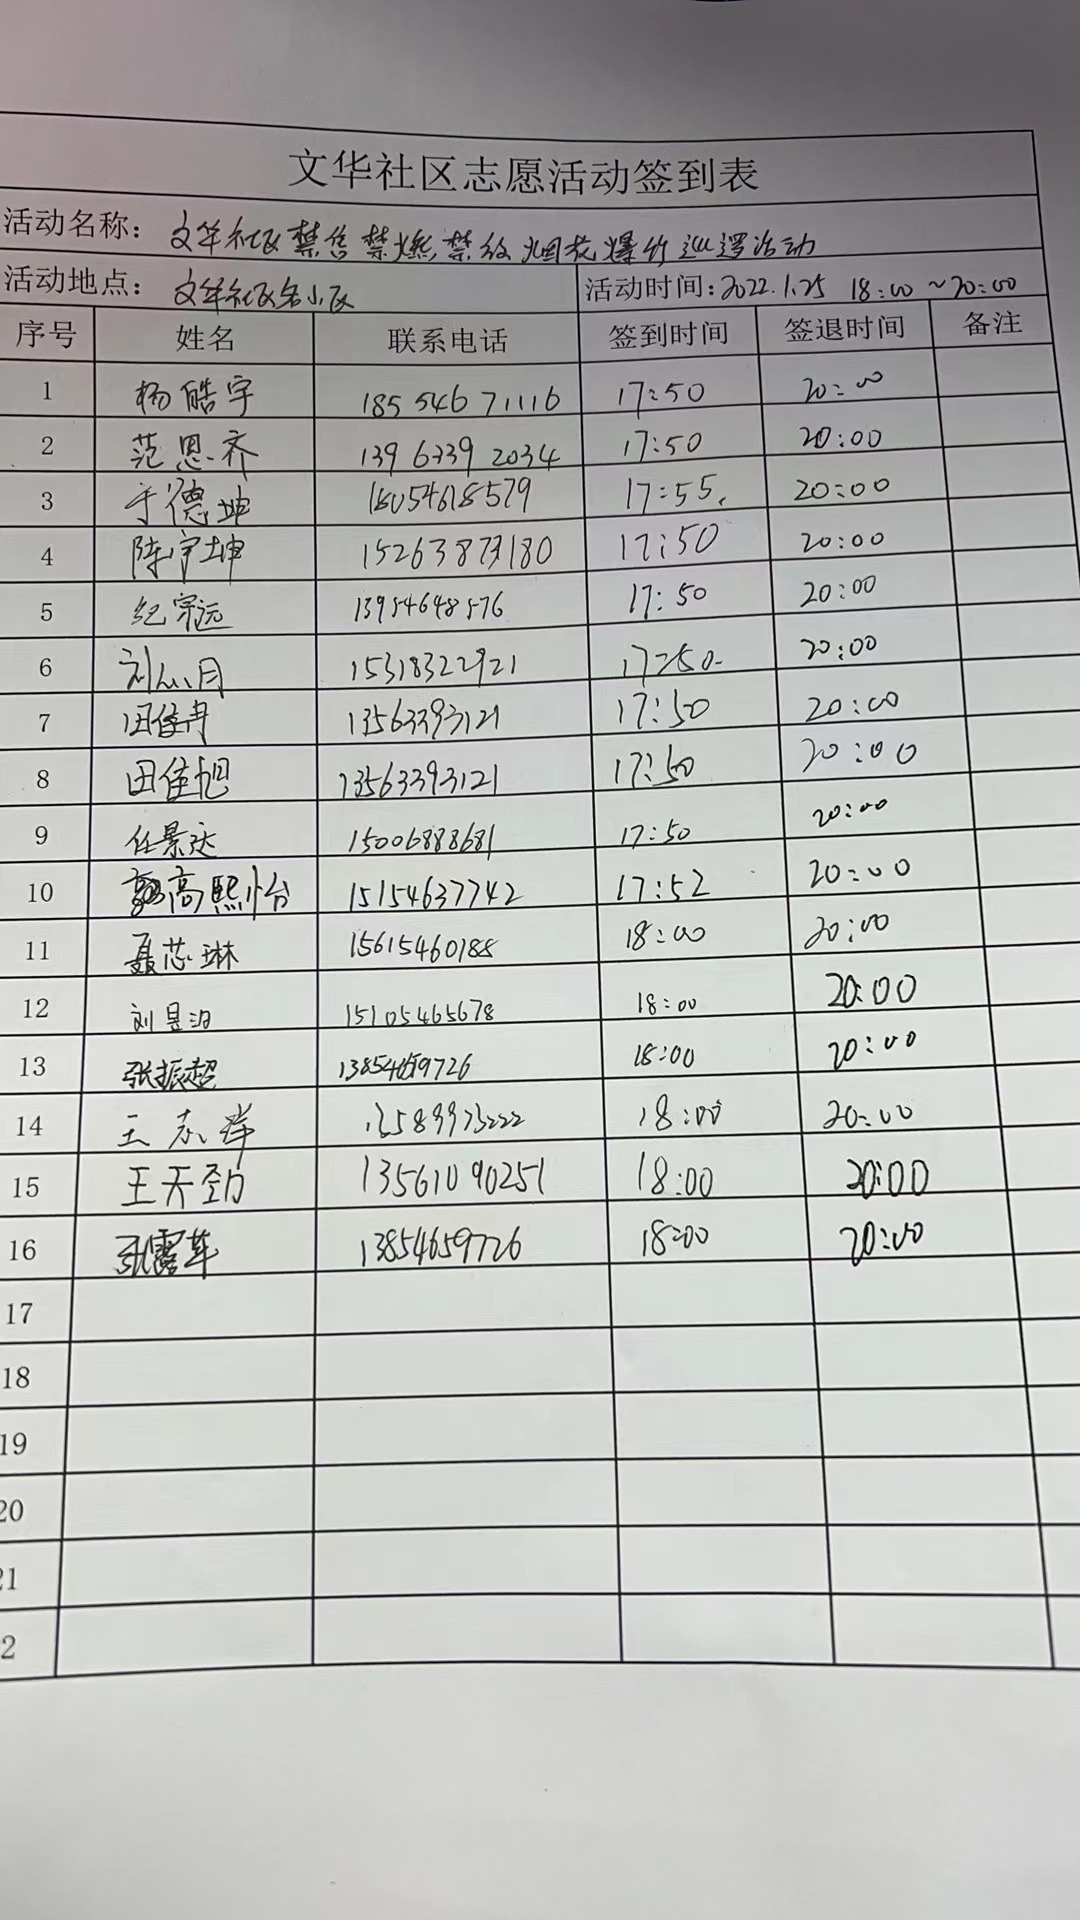 文华社区志愿活动签到表
活动名称: 文华社区禁售禁燃禁放烟花爆竹巡逻活动
活动地点: 文华社区各小区 活动时间:2022.1.25 18:00~20:00
序号 姓名 联系电话 签到时间 签退时间 备注
1 杨皓宇 18554671116 17:50 20:00
2 范恩齐 13963392034 17:50 20:00
3 于德坤 18054618579 17:55. 20:00
4 陈宇坤 15263873180 17:50 20:00
5 纪宗远 13954648576 17:50 20:00
6 15318322921 17:50 20:00
7 田佳冉 13563393121 17:50 20:00
8 田佳旭 13563393121 17:50 20:00
9 任景达 15006888681 17:50 20:00
10 高熙怡 15154637742 17:52 20:00
11 聂芯琳 15615460188 18:00 20:00
12 刘昱汐 15105465678 18:00 20:00
13 张振超 13854659726 18:00 20:00
14 18:00 20:00
15 王天劲 13561090251 18:00 20:00
16 张露 13854659726 18:00 20:00
17
18
19
20
21
2